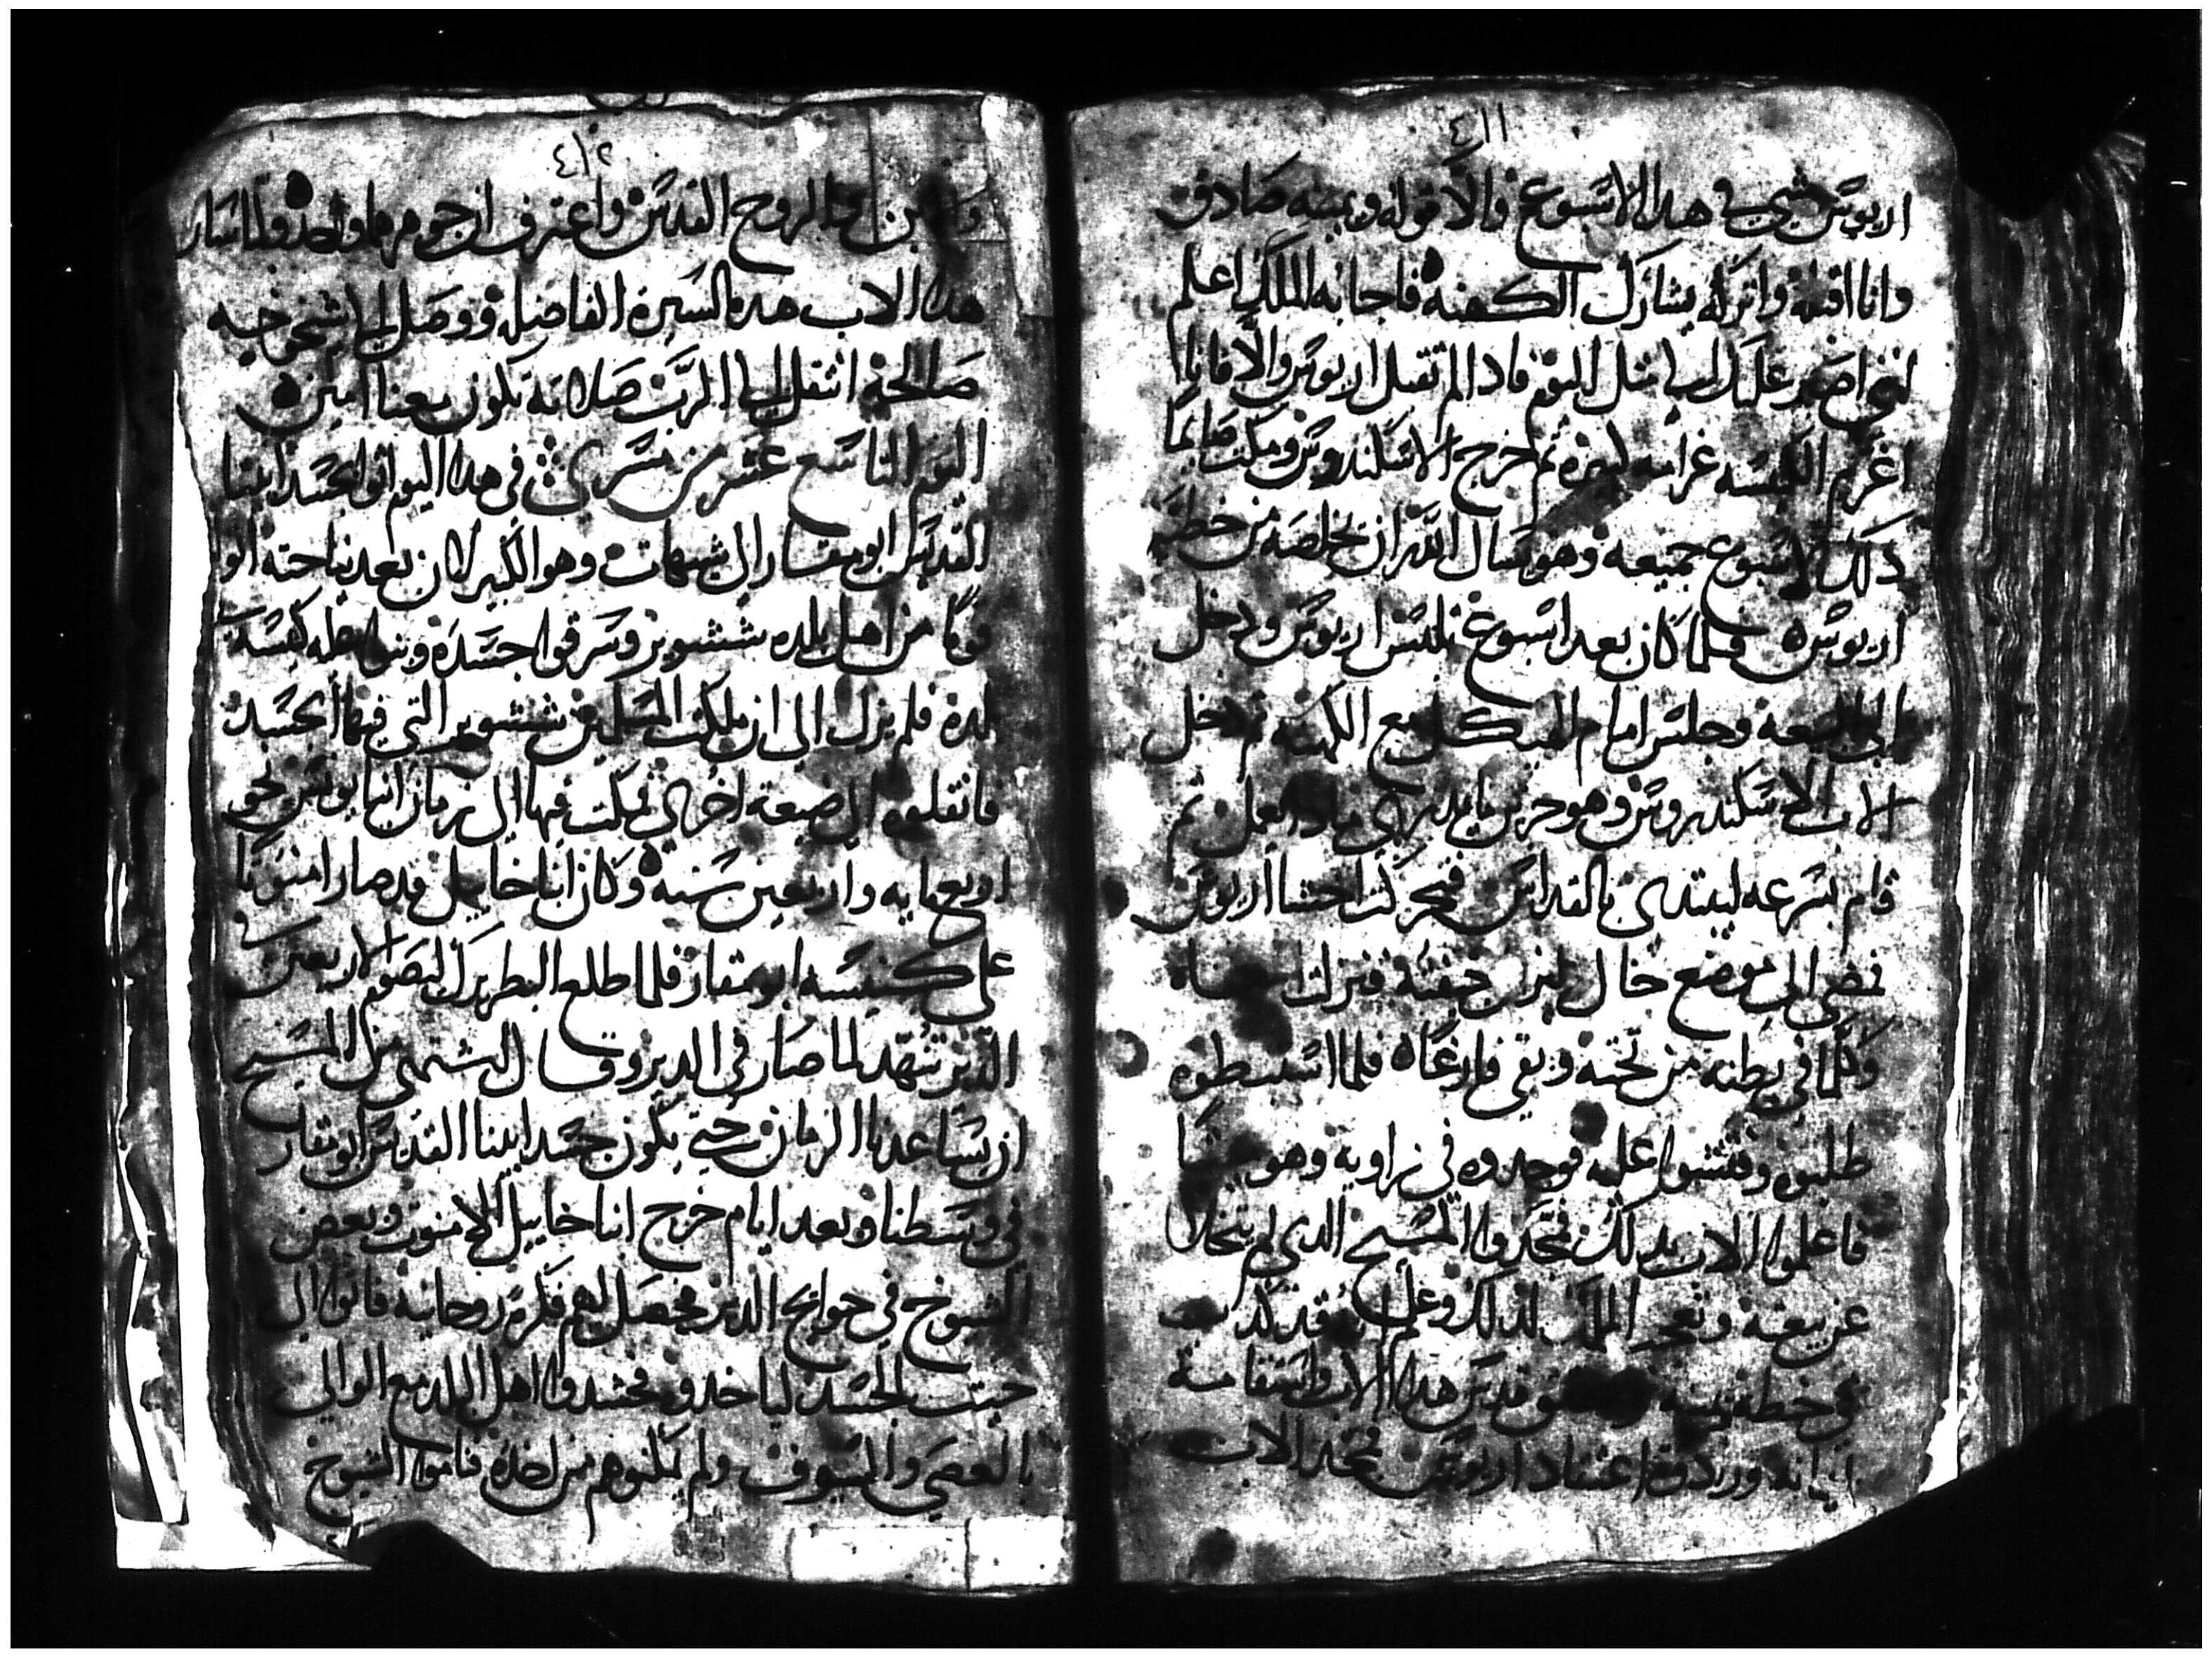 ٤١١
اريوس شي في هدا الاسبوع والا قوله ويمينه صادق
وانا اقبله واتركه يشارك الكهنه فاجابه الملك اعلم
انني اصبر عليك لمثل اليوم فادا لم تقبل اريوس والا فانا
اغرم الكنيسه غرامه كبيره ثم خرج الاسكندروس ومكث صايما
دلك الاسبوع جميعه وهو يسال الله ان يخلصه من خطية
اريوس فلما كان بعد اسبوع تلبس اريوس ودخل
الى البيعه وجلس امام الهيكل مع الكهنه ثم دخل
الاب الاسكندروس وهو حزين ما يدري مادا يعمل ثم
قام بسرعه ليبتدي بالقداس فتحركت احشا اريوس
فمضى الى موضع خال ليزل حقنه فنزلت امعاه
وكلما في بطنه من تحته وبقي فارغاه فلما استبطوه
طلبوه وفتشوا عليه فوجدوه في زاويه وهو ميتا
فاعلموا الاب بدلك فمجدوا المسيح الدي لم يتخلا
عن بيعته وتعجب الملك لدلك وعلم انه قد كدب
في خطه يمينه وتحقق قدس هدا الاب واستقامة
امانته ورداوة اعتقاد اريوس فمجد الاب
٤١٢
والابن والروح القدس واعترف ان جوهرهما واحد ولما سار
هدا الاب هده السيره الفاضله ووصل الى شيخوخيه
صالحه انتقل الى الرب صلاته تكون معنا امين
اليوم التاسع عشر من مسرى في هدا اليوم اتوا بجسد ابينا
القديس ابو مقار الى شيهات وهو الكبير لان بعد نياحته اتوا
قوما من اهل بلده شنشوير وسرقوا جسده وبنوا له كنيسة
لده فلم يزل الى ان ملكت المسلمين شنشوير التي فيها الجسد
فانقلوه الى ضيعه اخرى فمكث فيها الى زمان انبا يونس نحو
اربعمايه واربعين سنه وكان انبا خاييل قد صار امنوتا
على كنيسه ابو مقار فلما طلع البطريرك ليصوم الاربعين في
الدير تنهد لما صار في الدير وقال اشتهي من المسيح
ان يساعدنا الزمان حتى يكون جسد ابينا القديس ابو مقار
في وسطنا وبعد ايام خرج انبا خاييل الامنوت وبعض
الشيوخ في حوايج الدير فحصل لهم فكره روحانيه فاتوا الى
حيت الجسد لياخدوه فحشدوا اهل البلد مع الوالي
بالعصي والسيوف ولم يمكنوهم من اخده فناموا الشيوخ